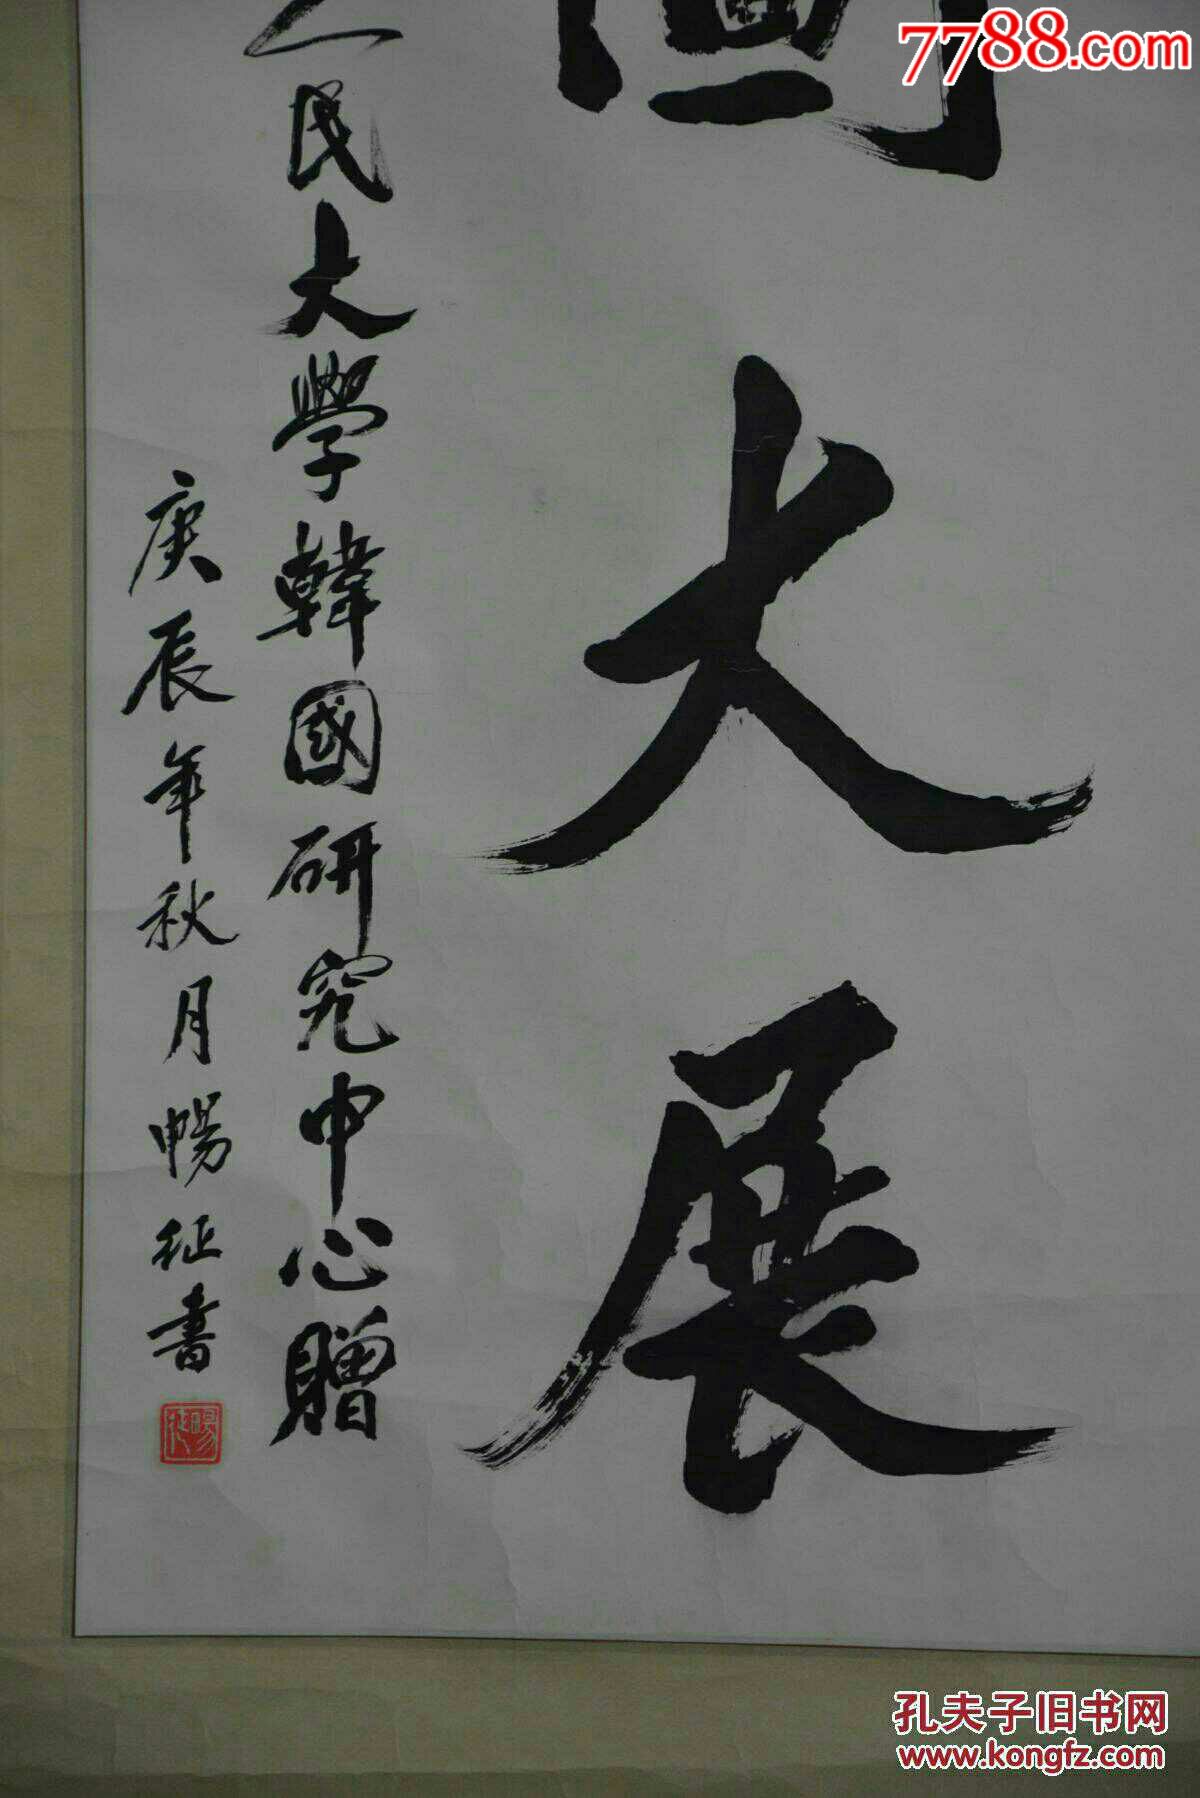 7788.com
大展
人民大學韓國研究中心贈
庚辰年秋月暢征書
孔夫子旧书网
www.kongfz.com